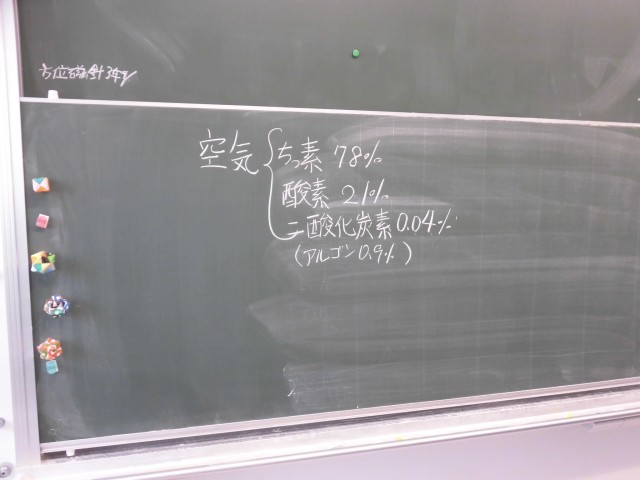 方位磁針
空気 ちっ素 78%
酸素 21%
二酸化炭素 0.04%
(アルゴン 0.9%)